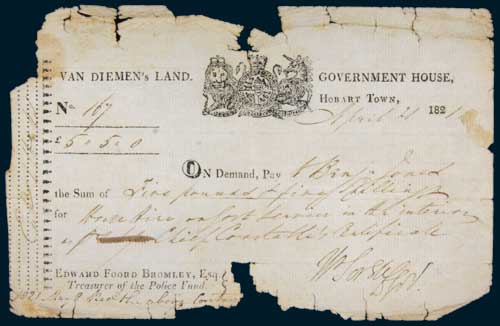 VAN DIEMEN's LAND.
GOVERNMENT HOUSE,
HOBART TOWN,
No 167
April 21 1821
£ 5 : 5 : 0
ON Demand, Pay to Benjn Jones
the Sum of Five pounds & five shillings
for Horse hire on Govt Service in the interior
Chief Constable's Certificate
EDWARD FOORD BROMLEY, Esq.
Treasurer of the Police Fund.
Wm Sorell
1821 the above